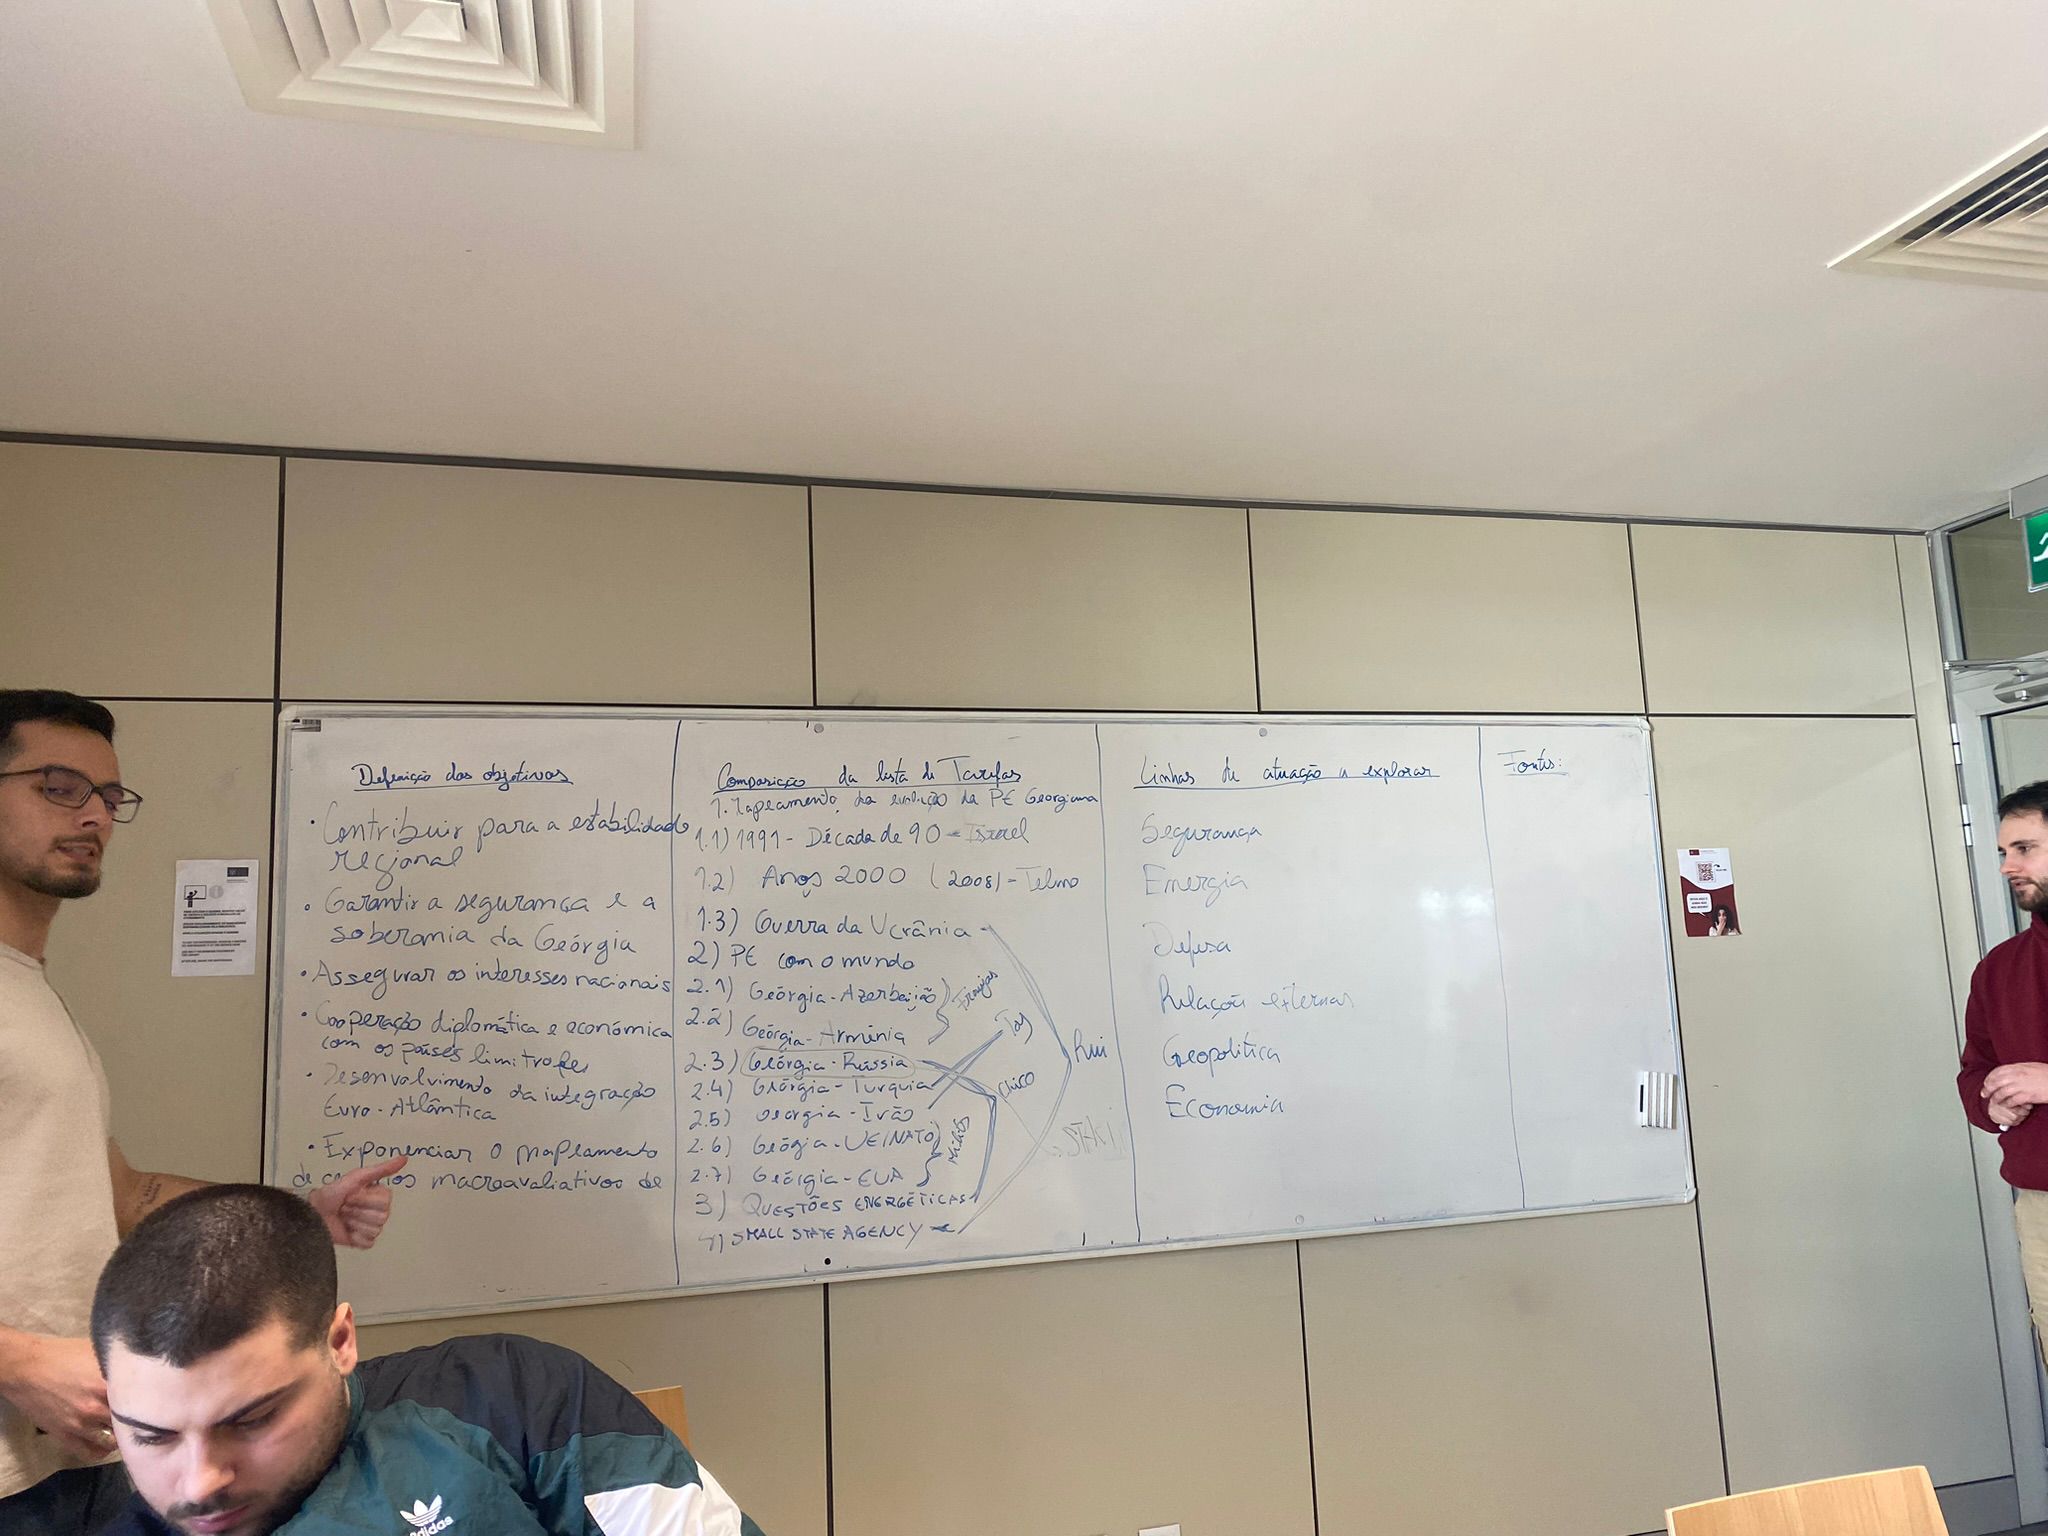 Definição dos objetivos
• Contribuir para a estabilidade
regional
• Garantir a segurança e a
soberania da Geórgia
• Assegurar os interesses nacionais
• Cooperação diplomática e económica
com os países limitrofes
• Desenvolvimento da integração
Euro-Atlântica
• Exponenciar o mapeamento
de macroavaliativos de
Composição da lista de Tarefas
1. Mapeamento da evolução da PE Georgiana
1.1) 1991 - Década de 90 - Israel
1.2) Anos 2000 (2008) - Telmo
1.3) Guerra da Ucrânia
2) PE com o mundo
2.1) Geórgia - Azerbeijão
2.2) Geórgia - Arménia
2.3) Geórgia - Rússia
2.4) Geórgia - Turquia
2.5) Georgia - Irão
2.6) Geógia - UE(NATO)
2.7) Geórgia - EUA
3) QUESTÕES ENERGÉTICAS
4) SMALL STATE AGENCY
Tay
Chico
Rui
Linhas de atuação a explorar
Segurança
Energia
Defesa
Relações externas
Geopolítica
Economia
Fontes:
adidas